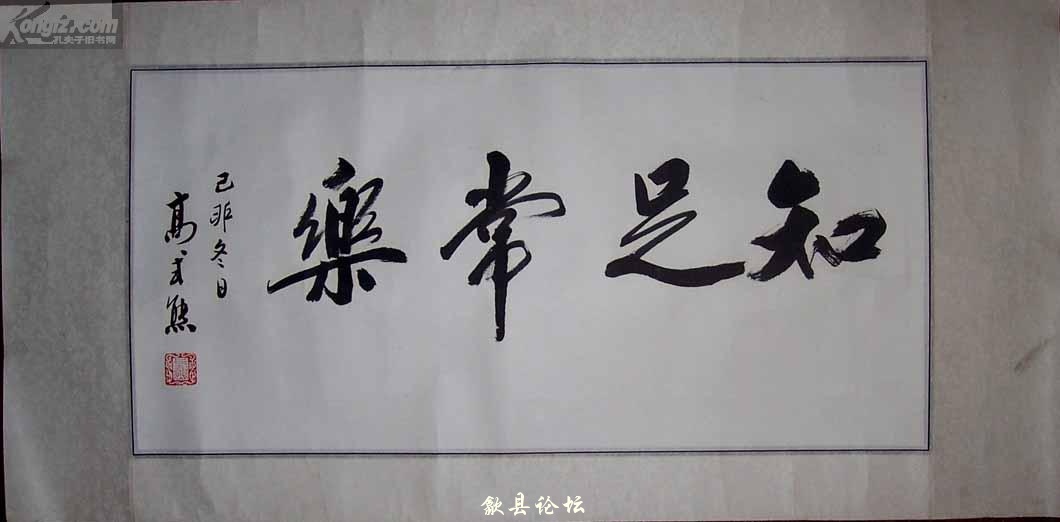 Kongfz.com
孔夫子旧书网
知足常樂
己卯冬日
高式熊
歙县论坛